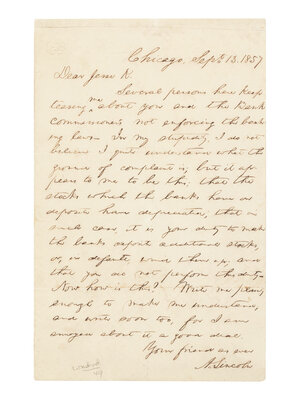 Chicago, Sept. 13. 1857
Dear Jesse K.
Several persons here keep
teasing me about you and the Bank
commissioners not enforcing the bank
ing law. In my stupidity I do not
believe I quite understand what the
ground of complaint is; but it ap
pears to me to be this: that the
stocks which the banks have on
deposite have depreciated, that in
such case, it is your duty to make
the banks deposit additional stocks,
or, in default, wind them up, and
that you do not perform this duty.
Now how is this? Write me plain
enough to make me understand,
and write soon too, for I am
annoyed about it a good deal.
Your friend as ever
A. Lincoln